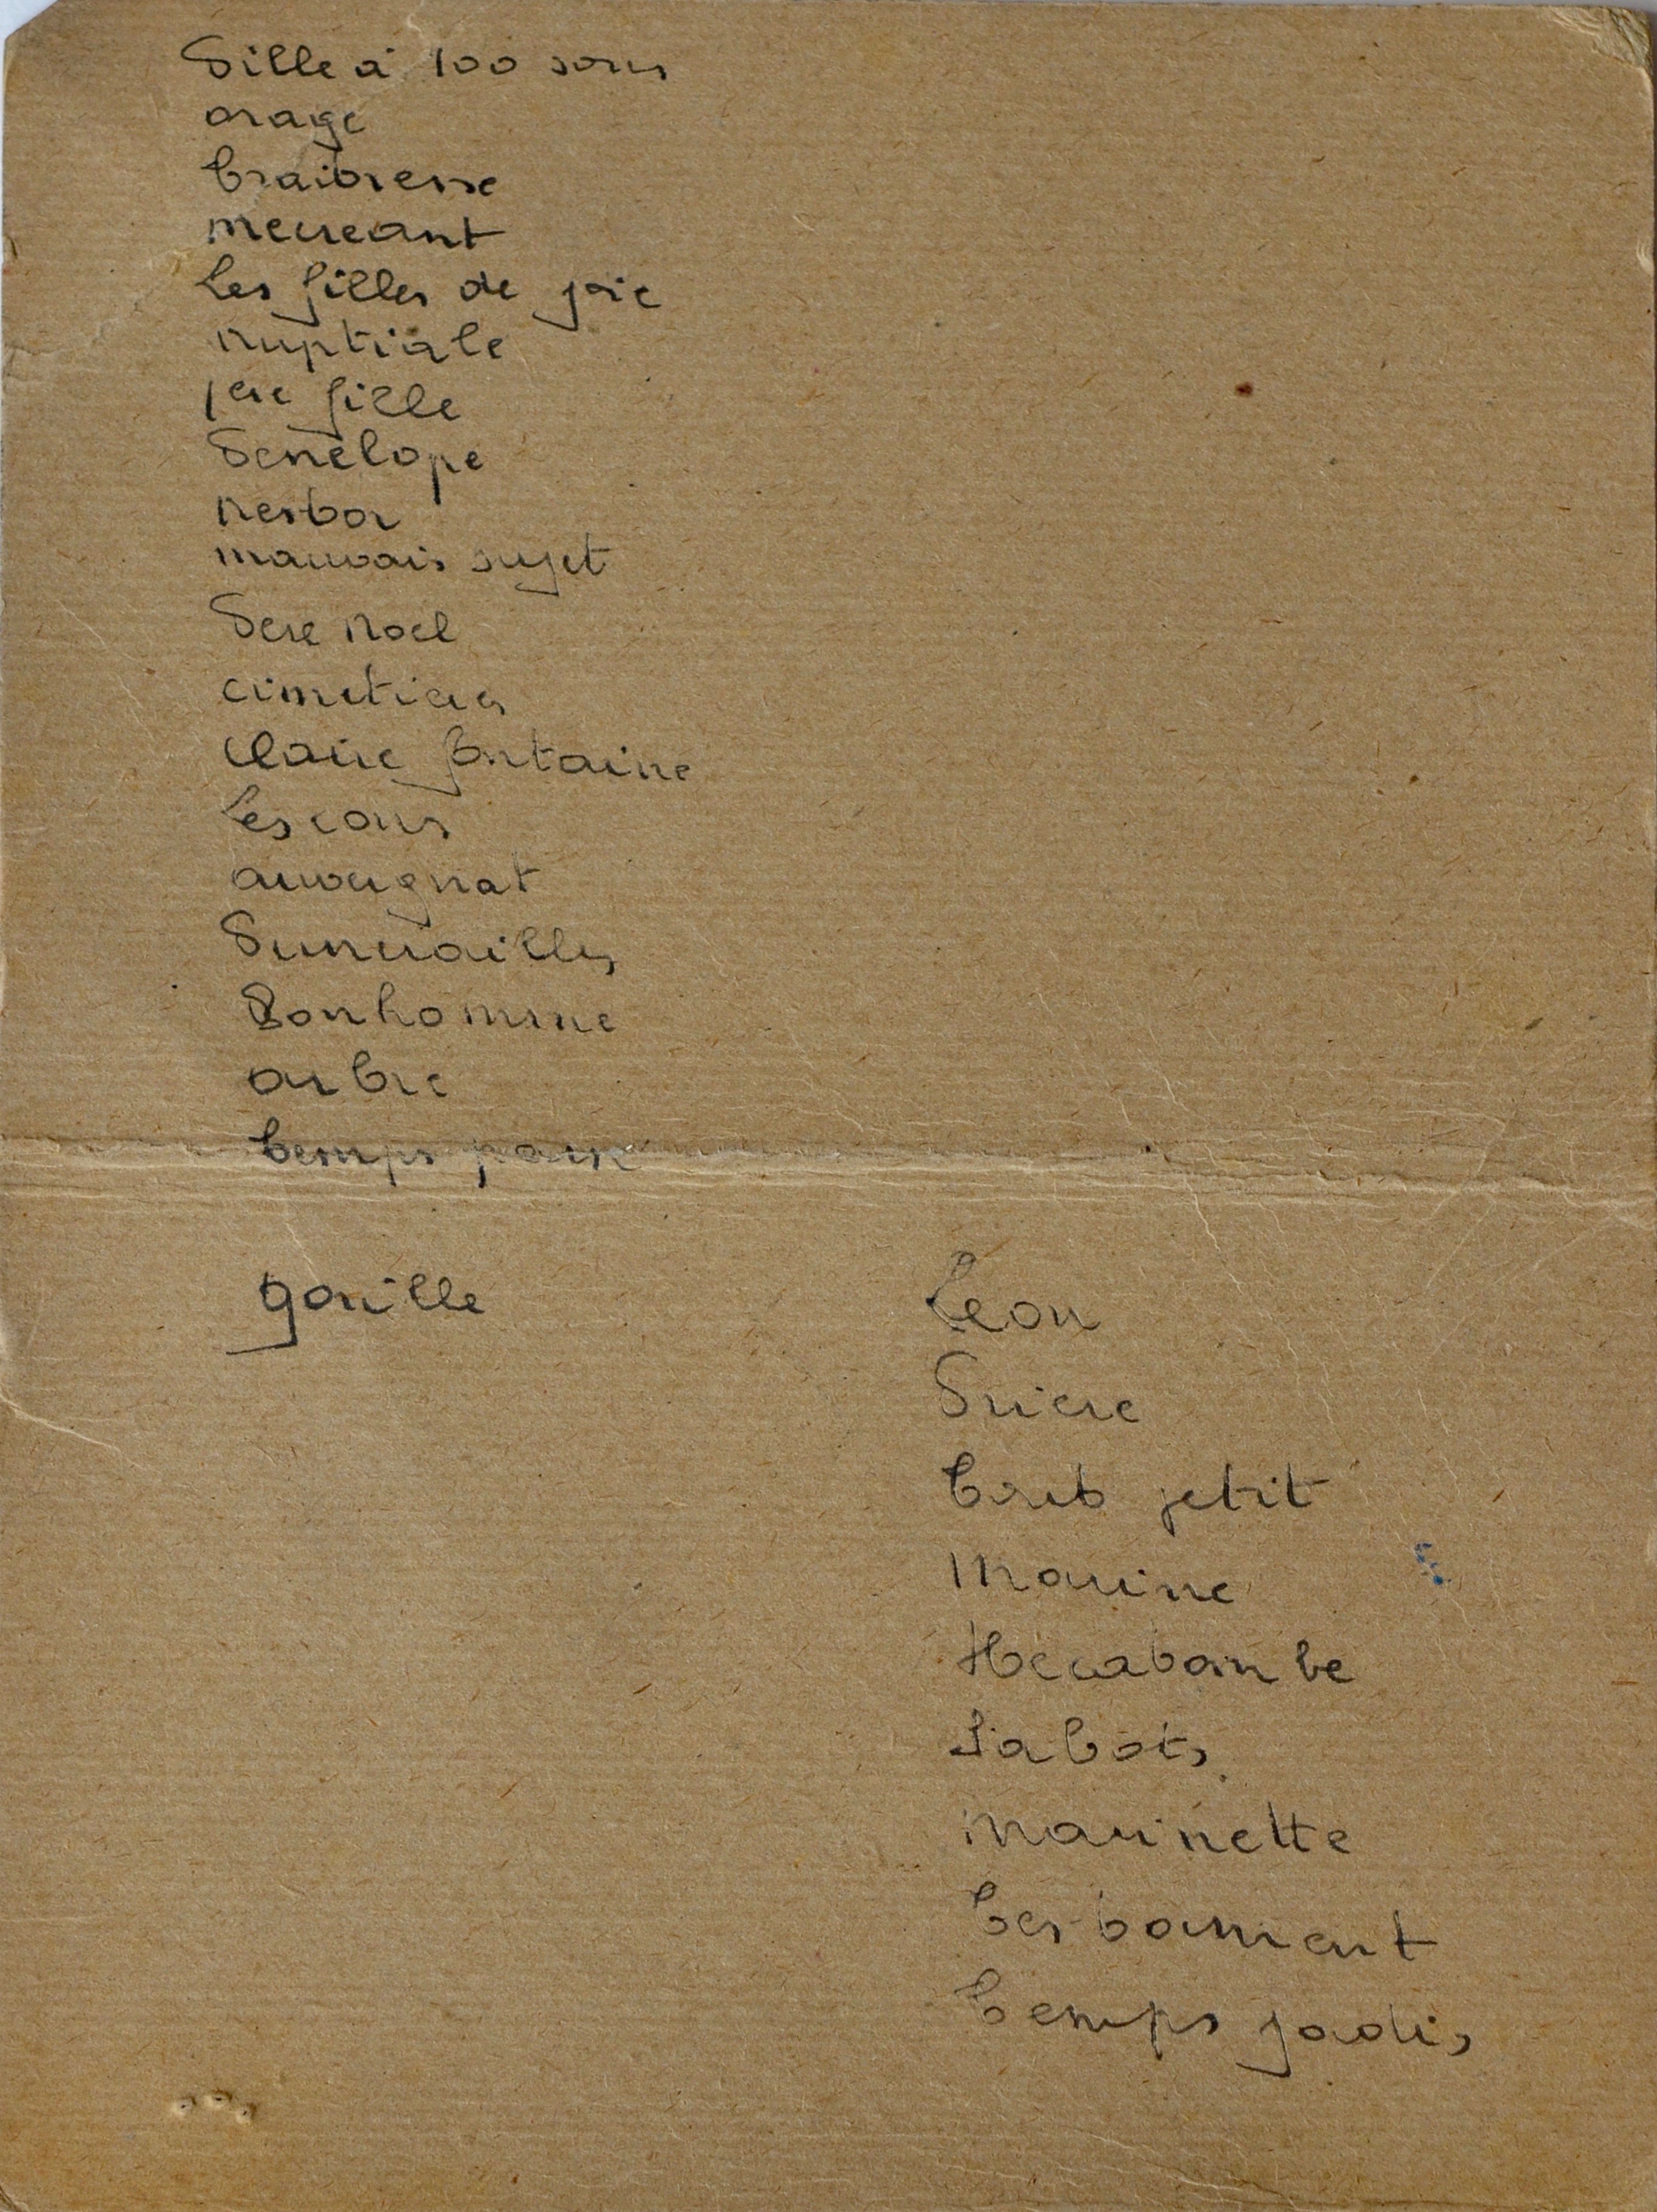 Fille à 100 sous
orage
traitresse
mecreant
Les filles de joie
nuptiale
1ere fille
Penelope
nestor
mauvais sujet
Pere Noel
cimetieres
claire fontaine
Les
auvergnat
Funerailles
Bonhomme
arbre
temps passé
gorille
Leon
Priere
tout petit
Marine
Hecatombe
Sabots
marinette
testament
temps jadis